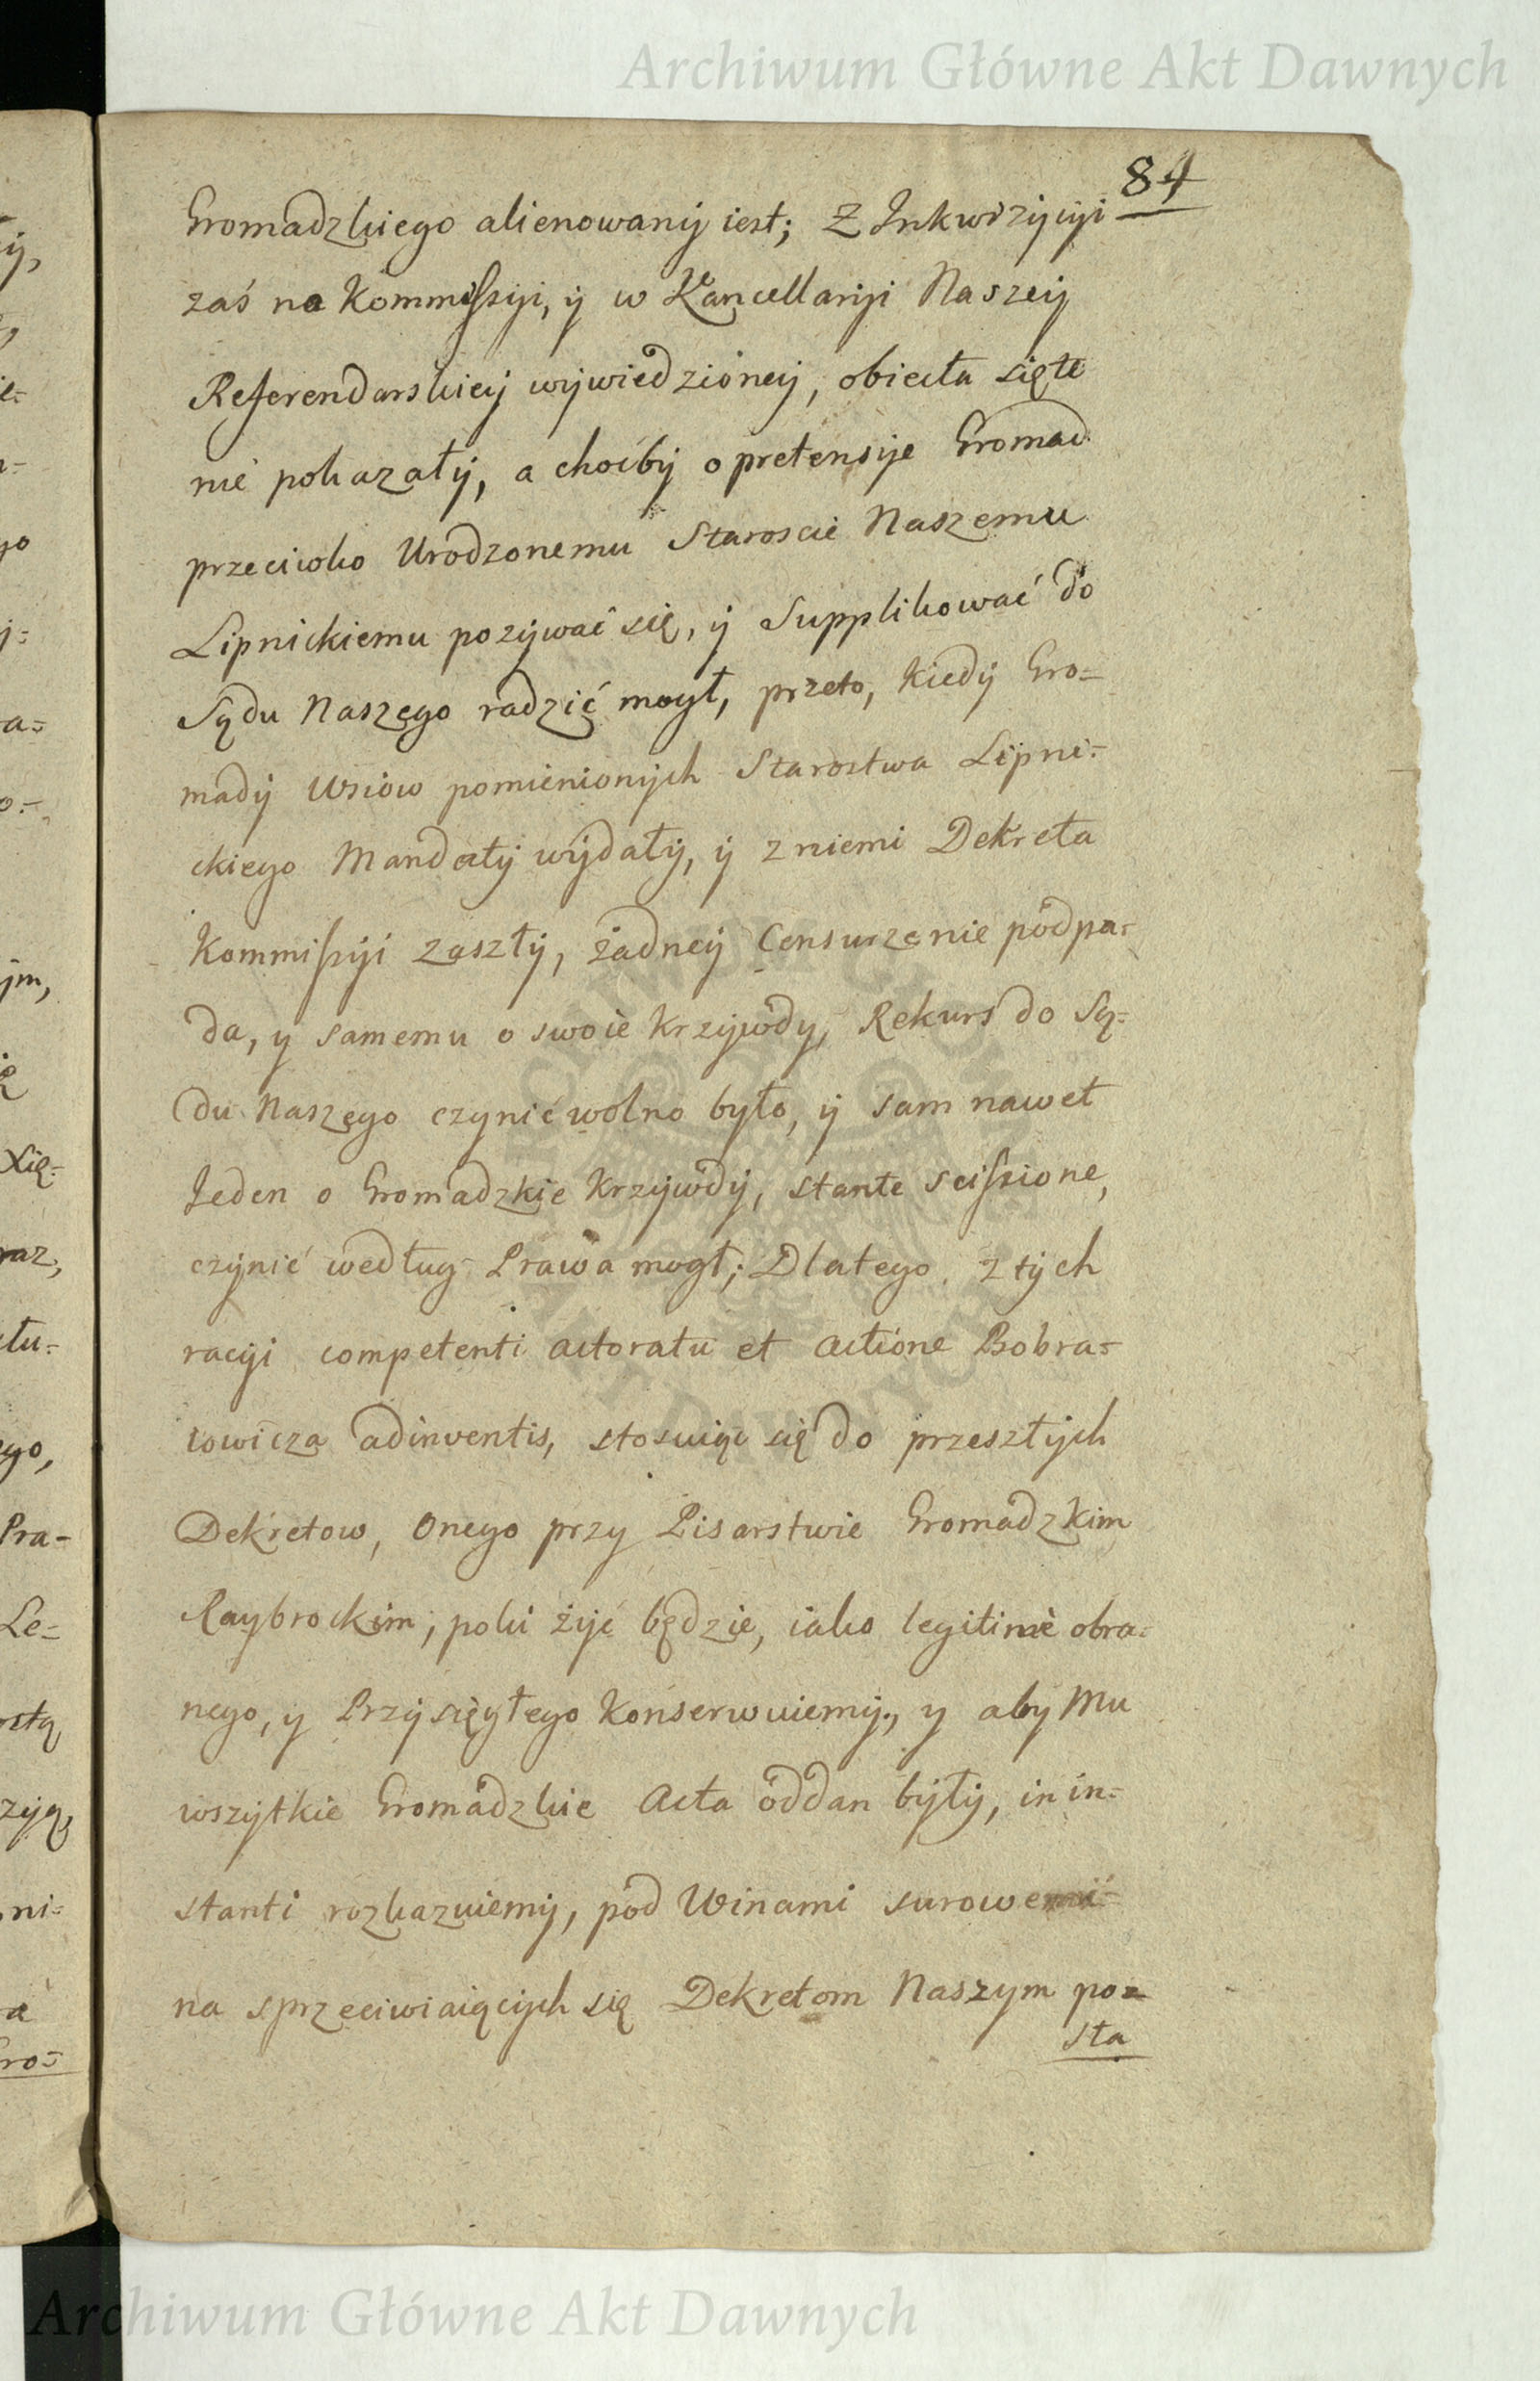 Archiwum Główne Akt Dawnych
84
Gromadzkiego alienowany iest; Z Inkwizycyi
zaś na Kommissyi, y w Kancellaryi Naszey
Referendarskiey wywiedzioney, obiecta się te
nie pokazały, a choćby o pretensye Gromad
przeciwko Urodzonemu Staroscie Naszemu
Lipnickiemu pozywać się, y Supplikować do
Sądu Naszego radzić mogł, przeto, kiedy Gro=
mady Wsiow pomienionych Starostwa Lipni=
ckiego Mandaty wydały, y z niemi Dekreta
Kommissyi zaszły, żadney Censurze nie podpa=
da, y samemu o swoie krzywdy, Rekurs do Są=
du Naszego czynić wolno było, y sam nawet
Jeden o Gromadzkie Krzywdy, stante scissione,
czynić według Prawa mogł; Dlatego z tych
racyi competenti actoratu et actione Bobra=
towicza adinventis, stosuiąc się do przeszłych
Dekretow, Onego przy Pisarstwie Gromadzkim
Raybrockim, poki żyć będzie, iako legitime obra=
nego, y Przysięgłego Konserwuiemy, y aby Mu
wszytkie Gromadzkie Acta oddan były, in in=
stanti rozkazuiemy, pod Winami surowemi
na sprzeciwiaiących się Dekretom Naszym po=
sta
Archiwum Główne Akt Dawnych